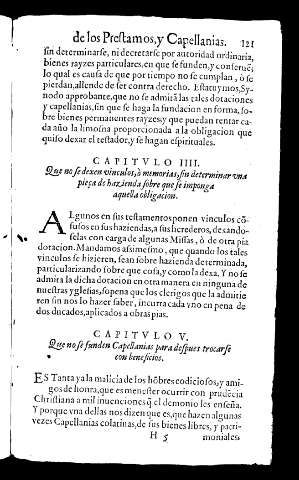 de los Prestamos, y Capellanias. 121
sin determinarse, ni decretarse por autoridad ordinaria,
bienes rayzes particulares, en que se funden, y conseruẽ;
lo qual es causa de que por tiempo no se cumplan, ò se
pierdan, allende de ser contra derecho. Estatuymos, Sy-
nodo approbante, que no se admitã las tales dotaciones
y capellanias, sin que se haga la fundacion en forma, so-
bre bienes permanentes rayzes, y que puedan rentar ca-
da año la limosna proporcionada a la obligacion que
quiso dexar el testador, y se hagan espirituales.
CAPITVLO IIII.
Que no se dexen vinculos, ò memorias, sin determinar vna
pieça de hazienda sobre que se imponga
aquella obligacion.
ALgunos en sus testamentos ponen vinculos cõ-
fusos en sus haziendas, a sus herederos, dexando-
selas con carga de algunas Missas, ò de otra pia
dotacion. Mandamos assimesmo, que quando los tales
vinculos se hizieren, sean sobre hazienda determinada,
particularizando sobre que cosa, y como la dexa. Y no se
admita la dicha dotacion en otra manera en ninguna de
nuestras yglesias, sopena que los clerigos que la admitie
ren sin nos lo hazer saber, incurra cada vno en pena de
dos ducados, aplicados a obras pias.
CAPITVLO V.
Que no se funden Capellanias para despues trocarse
con beneficios.
ES Tanta ya la malicia de los hõbres codiciosos, y ami-
gos de honra, que es menester ocurrir con prudẽcia
Christiana a mil inuenciones q̃ el demonio les enseña.
Y porque vna dellas nos dizen que es, que hazen algunas
vezes Capellanias colatinas, de sus bienes libres, y patri-
H 5 moniales